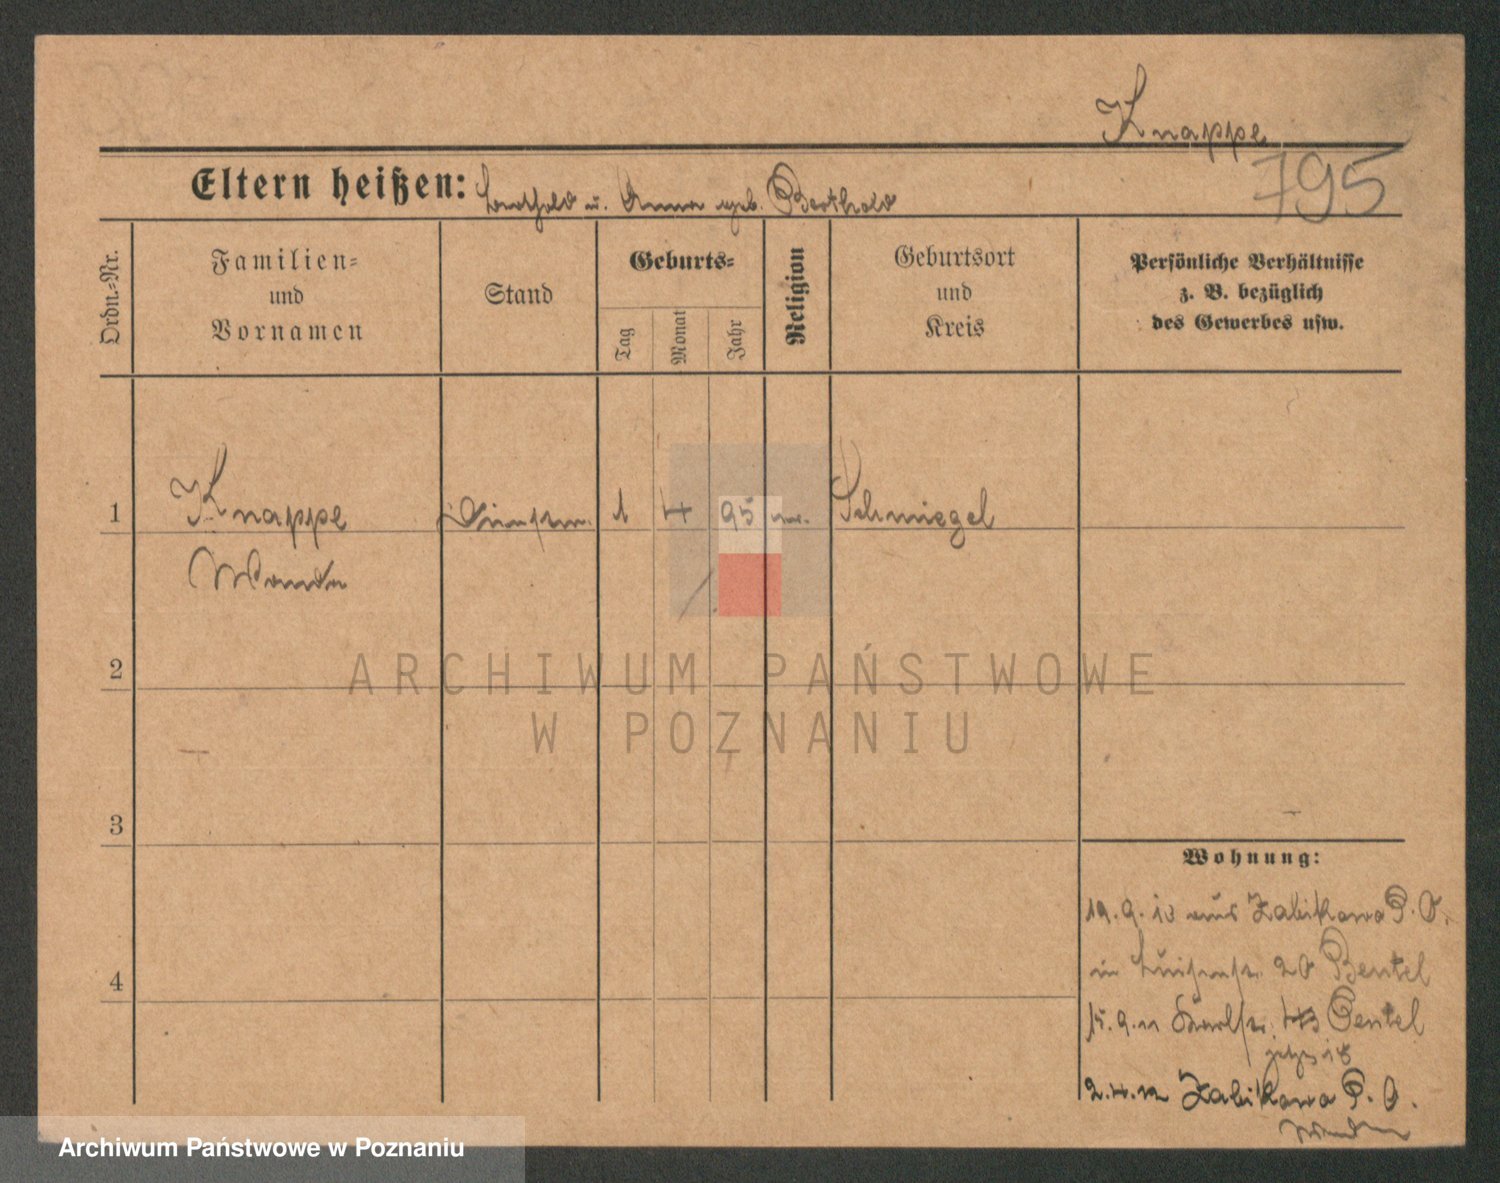 Knappe
795
Eltern heißen: Berthold u. Anna geb. Berthold
Ordn.-Nr.
Familien-
und
Vornamen
Stand
Geburts-
Tag
Monat
Jahr
Religion
Geburtsort
und
Kreis
Persönliche Verhältnisse
z. B. bezüglich
des Gewerbes usw.
1 Knappe 1 4 95 Schmiegel
Wanda
2
3
4
Wohnung:
19. 9. 10 aus Zabikowo P. O.
in 20 Bentel
15. 9. 11 Bentel
2. 4. 12 Zabikowo P. O.
ARCHIWUM PAŃSTWOWE
W POZNANIU
Archiwum Państwowe w Poznaniu